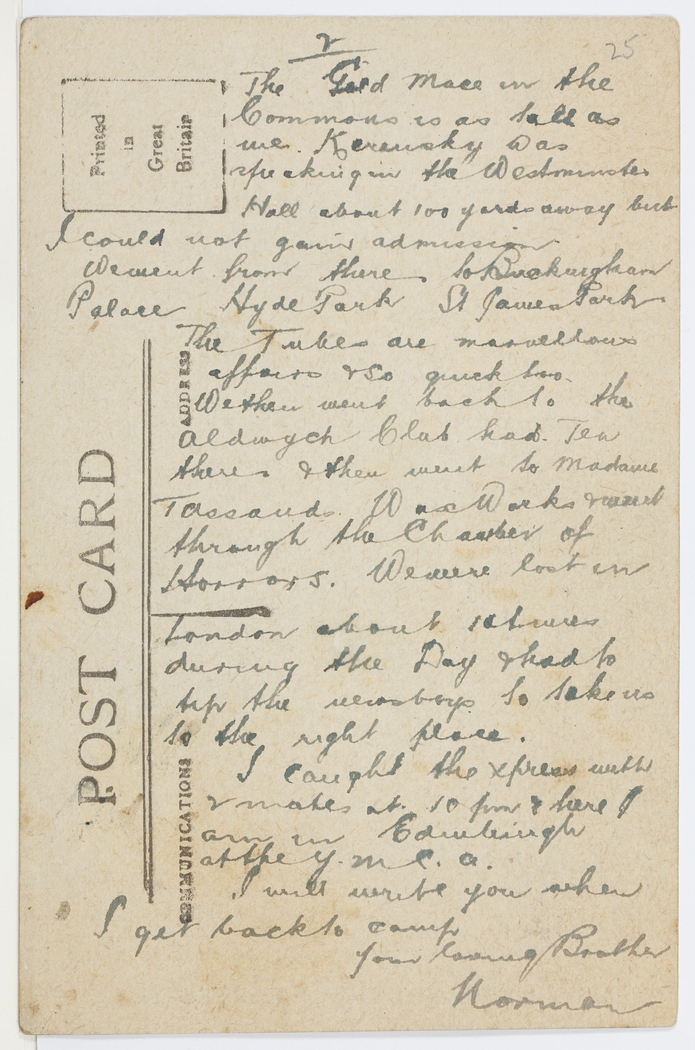 2
25
Printed
in
Great
Britain
The Gold Mace in the
Commons is as tall as
me. Kerensky was
speaking in the Westminster
Hall about 100 yards away but
I could not gain admission
We went from there to Buckingham
Palace Hyde Park St James Park
The Tubes are marvellous
affairs & so quick too.
We then went back to the
Aldwych Club had Tea
there & then went to Madame
Tassauds Wax Works & went
through the Chamber of
Horrors. We were lost in
London about 12 times
during the Day & had to
tip the newsboys to take us
to the right place.
I caught the xpress with
2 mates at 10 pm & here I
am in Edinburgh
at the Y.M.C.A.
I will write you when
I get back to camp
Your loving Brother
Norman
POST CARD
ADDRESS
COMMUNICATIONS